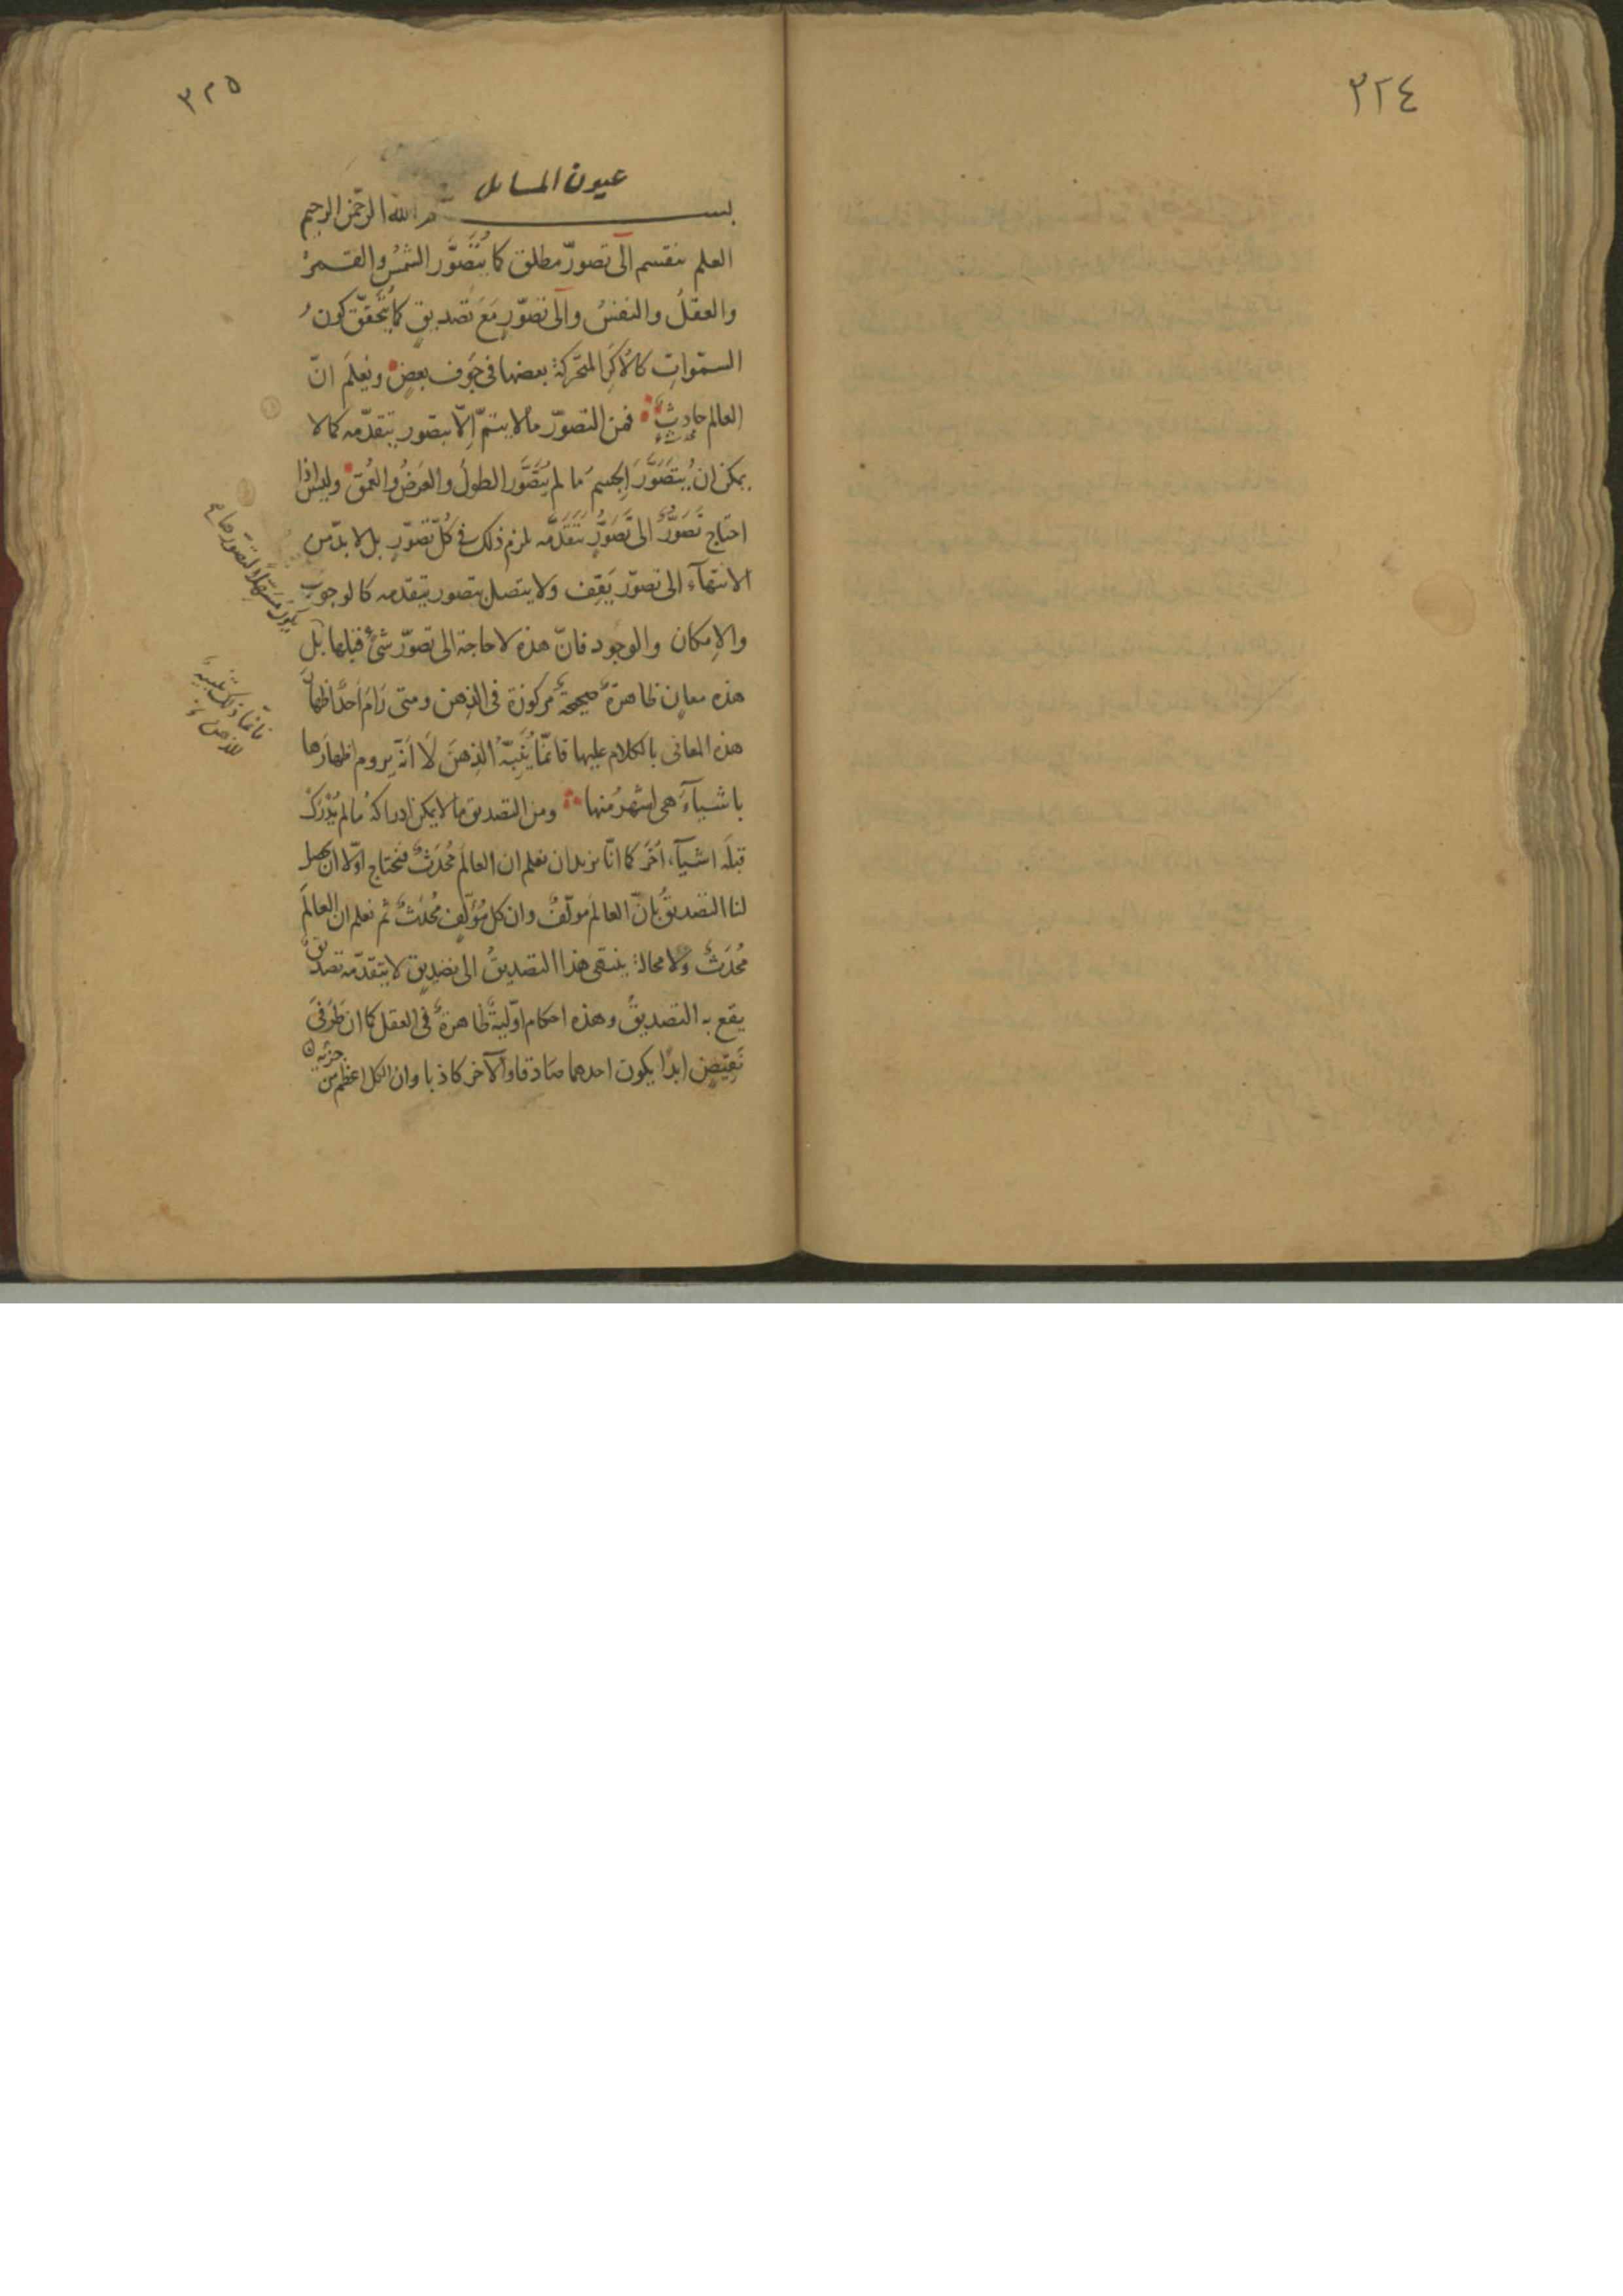 ٣٢٤
٣٢٥
عيون المسايل
بسم الله الرحمن الرحيم
العلم ينقسم الى تصوّر مطلق كما يُتَصَوَّر الشمسُ والقـمرُ
والعقلُ والنفسُ والى تصوّرٍ مَعَ تصديقٍ كما يُتَحقّق كونُ
السمٰواتِ كالاُكَرِ المتحركة بعضها فى جَوف بعضٍ ويُعلَم انّ
العالم حادِثٌ محدث فمن التصوّر ما لا يتمّ اِلّا بتصور يتقدّمه كما لا
يمكن ان يُتصَوَّرَ الجسمُ ما لم يُتَصَوَّر الطولُ والعَرضُ والعُمق وليس اذا
احتاج تَصَوُّرٌ الى تَصَوُّرٍ يَتَقَدَّمه لزم ذلك فى كُلّ تصوّرٍ بل لا بدّ من
الانتهآء الى تصوّر يَقِف ولا يتصل بتصور يتقدّمه كالوجوب
والاِمكان والوجود فانّ هذه لا حاجة الى تصوّر شئٍ قبلها بَل
هذه معانٍ ظاهرةٌ صحيحةٌ مركوزة فى الذهن ومتى رَامَ اَحدٌ اظهارَ
هذه المعانى بالكلام عليها فانّما يُنَبِّهُ الذِهنَ لَا اَنّه يروم اظهارَها
باشيآءَ هى اشهرُ منها ومن التصديق ما لا يمكن ادراكهُ ما لم يُدْرَكْ
قبلَه اشيآء اُخَرَ كما انّا نريد ان نعلم ان العالَم مُحدَثٌ فنحتاج اوّلا ان يحصل
لنا التصديقُ بانّ العالمَ مولّفٌ وان كل مُؤَلَّفٍ مُحدَثٌ ثم نعلم ان العالَمَ
مُحدَثٌ ولا محالة ينتهى هذا التصديقُ الى تصديقٍ لا يتقدّمه تصديقٌ
يقع به التصديقُ وهذه احكام اوّليةٌ ظاهرةٌ فى العقل كما ان طَرَفَى
نَقِيضٍ ابدًا يكون احدهما صَادقا والآخر كاذبا وان الكل اعظم من جزئه
فانّما ذلك تنبيهٌ
للذهن